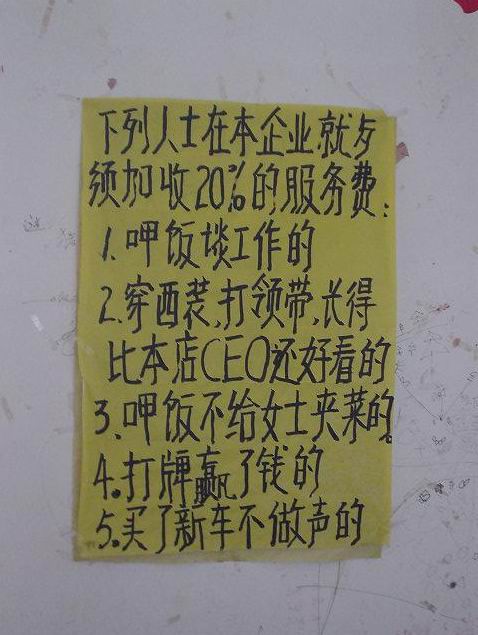 下列人士在本企业就歺
须加收20%的服务费:
1.呷饭埮工作的
2.穿西装,打领带,长得
比本店CEO还好看的
3.呷饭不给女士夹菜的
4.打牌赢了钱的
5.买了新车不做声的